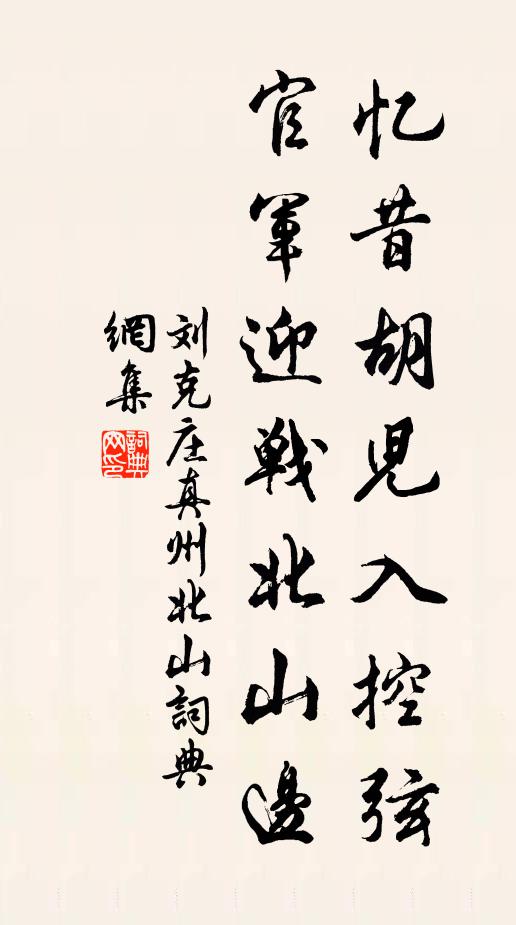 忆昔胡児入控弦
官軍迎戦北山邊
刘克庄真州北山詞典
網集
詞典
网印